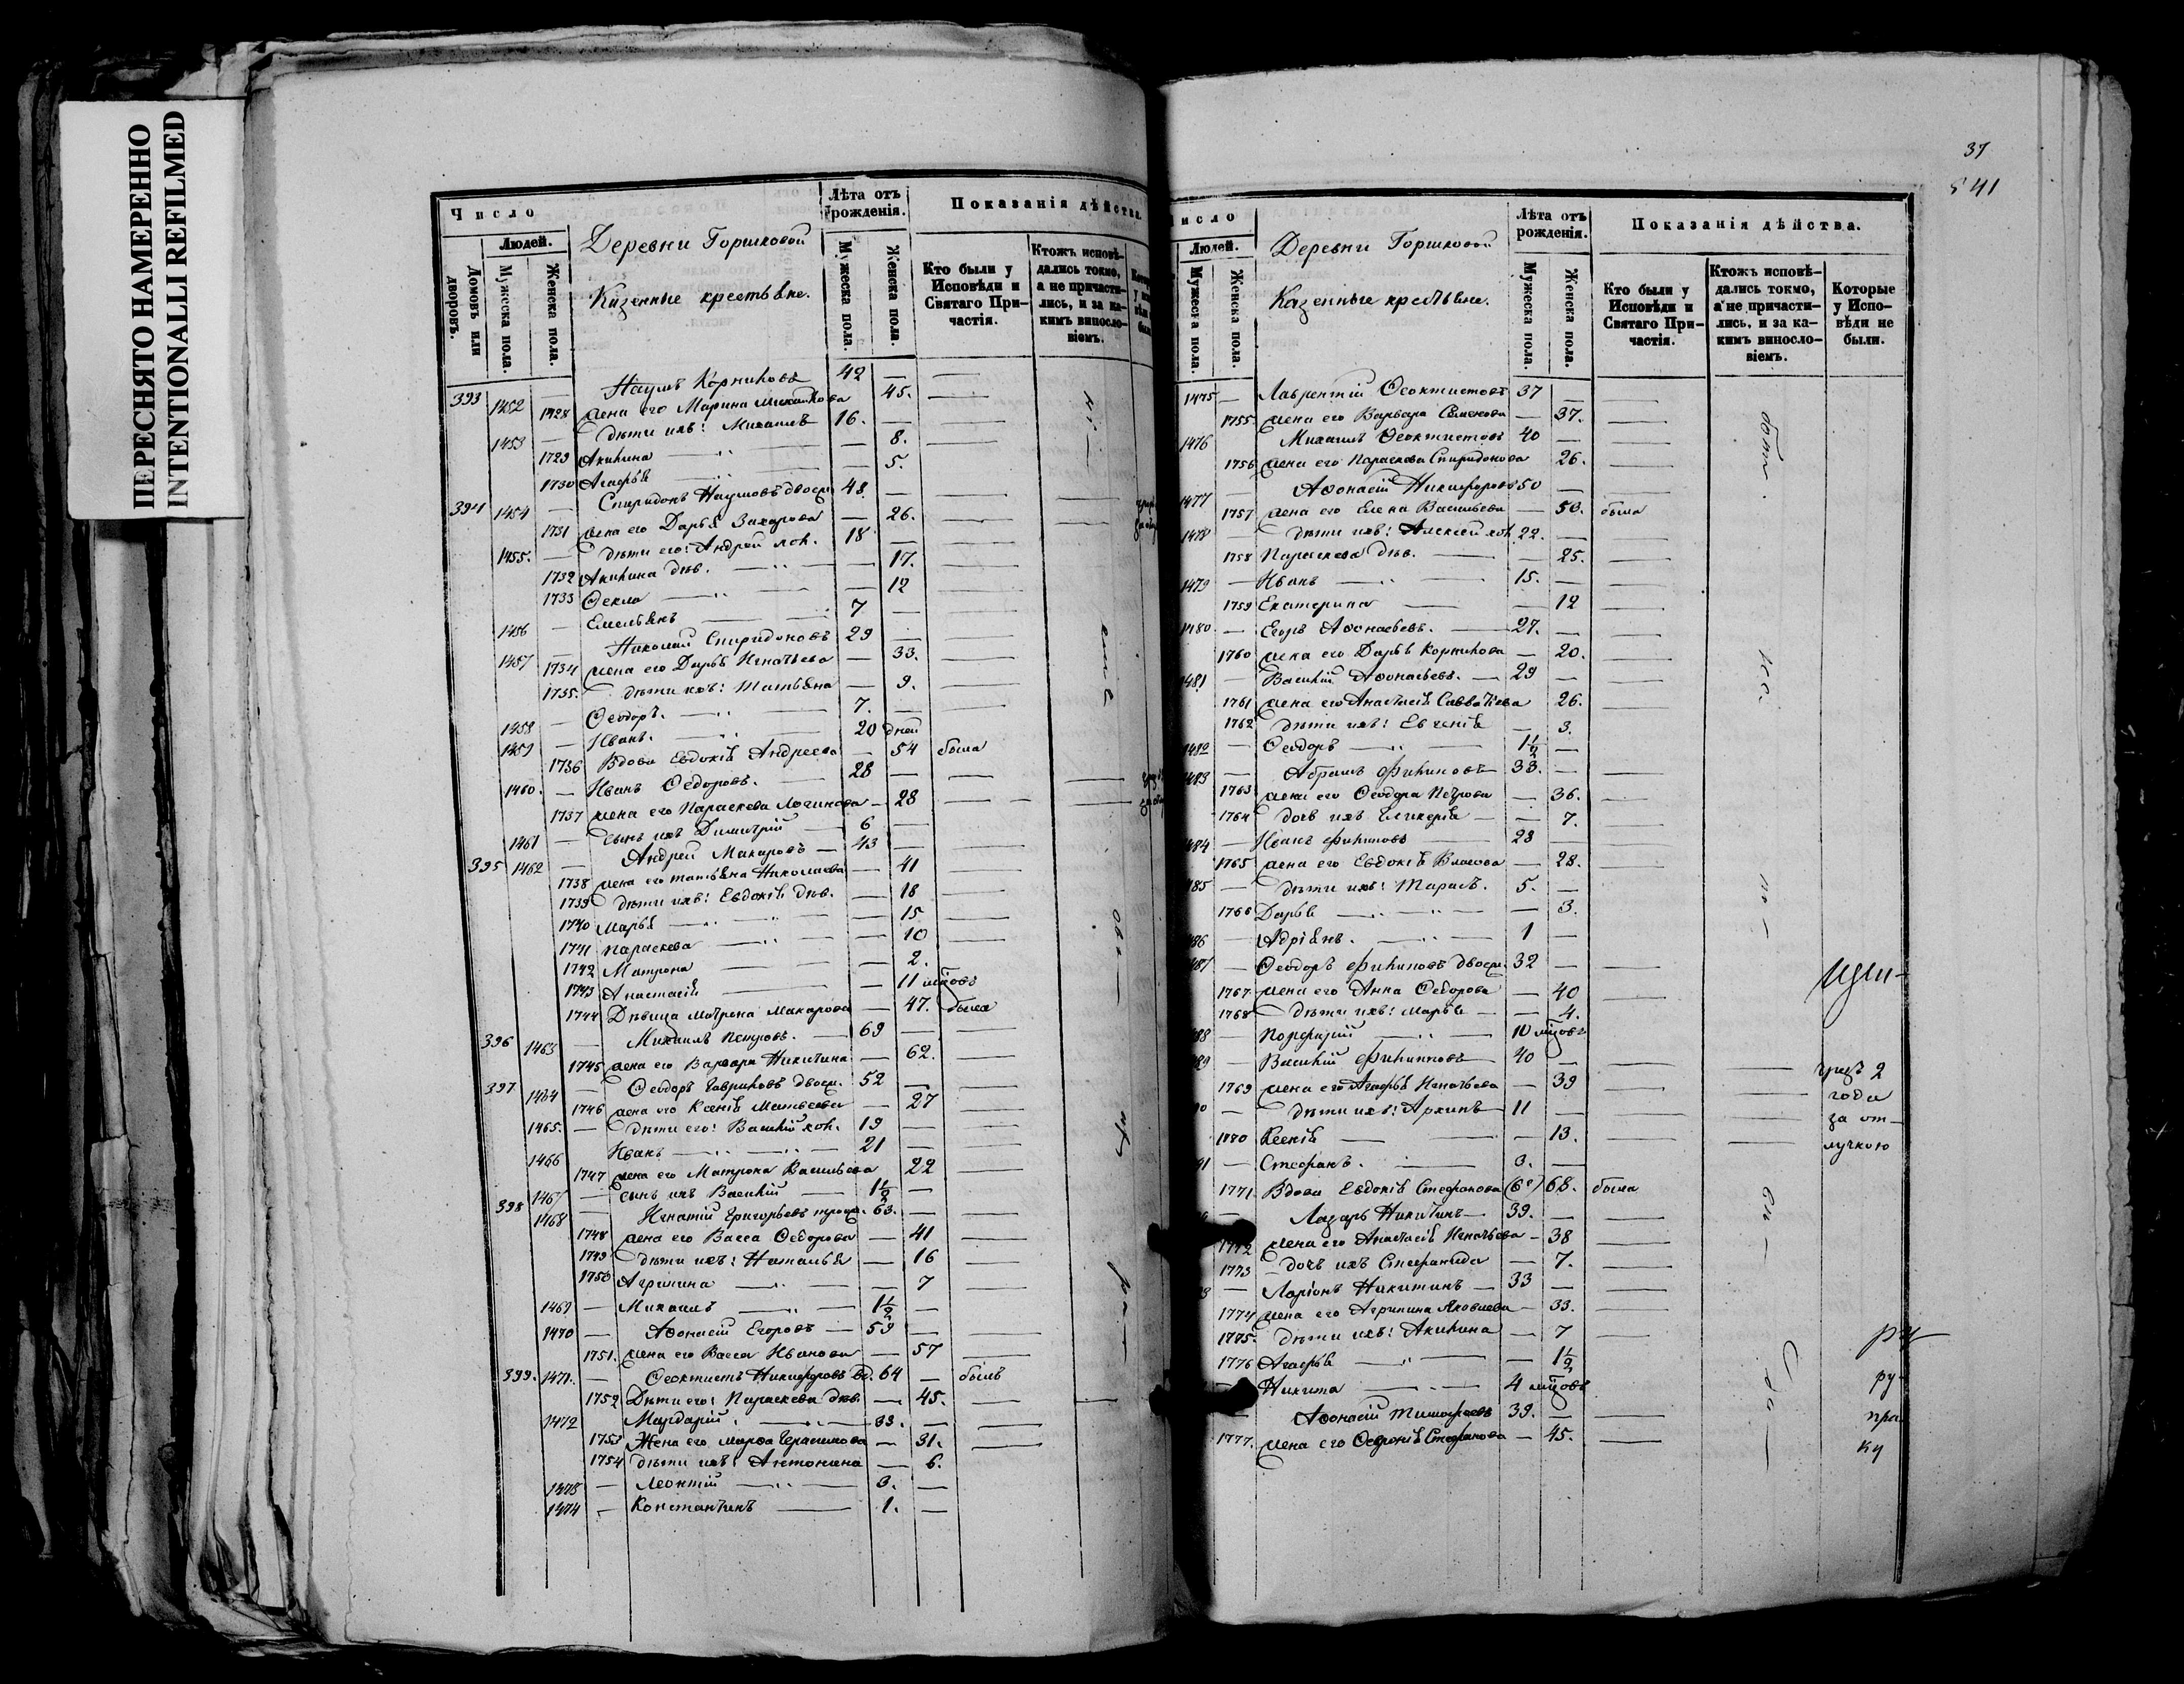 ПЕРЕСНЯТО НАМЕРЕННО
INTENTIONALLI REFILMED
Число
Людей.
Домовъ или дворовъ.
Мужеска пола.
Женска пола.
Деревни Горшковой
Казенные крестьяне.
Лѣта отъ рожденія.
Мужеска пола.
Женска пола.
Показанія дѣйства.
Кто были у Исповѣди и Святаго При-частія.
Ктожъ исповѣ-дались токмо, а не причасти-лись, и за ка-кимъ винословіемъ.
393 1452 — Наумъ Корниловъ 42 —
1728 жена его Марина Михайлова 45.
1453 — дѣти ихъ: Михаилъ 16. —
1729 Акилина — 8.
1730 Агафья — 5.
394 1454 — Спиридонъ Наумовъ двоеж. 48. —
1731 жена его Дарья Захарова — 26.
1455. — дѣти его: Андрей хол. 18 —
1732 Акилина дѣв. — 17.
1733 Ѳекла — 12
1456 — Емельянъ 7 —
1457 — Николай Спиридоновъ 29 —
1734 жена его Дарья Игнатьева — 33.
1735. дѣти ихъ: Татьяна — 9.
1458 — Ѳеодоръ. 7. —
1459 — Иванъ. 20 дней
1736 Вдова Евдокія Андреева — 54 была
1460. — Иванъ Ѳедоровъ. 28 —
1737 жена его Параскева Логинова — 28
1461 — сынъ ихъ Димитрій 6 —
395 1462 — Андрей Макаровъ 43 —
1738 жена его Татьяна Николаева — 41
1739 дѣти ихъ: Евдокія дѣв. — 18
1740 Марья — 15
1741 Параскева — 10
1742 Матрона — 2.
1743 Анастасія — 11 мѣсяцовъ
1744 Дѣвица Матрена Макарова — 47. была
396 1463 — Михаилъ Петровъ. 69 —
1745 жена его Варвара Никитина — 62.
397 1464 — Ѳеодоръ Гавриловъ двоеж. 52 —
1746 жена его Ксенія Матвеева — 27
1465. — дѣти его: Василій хол. 19 —
1466 Иванъ 21 —
1747 жена его Матрона Васильева 22
1467 — сынъ ихъ Василій 1½ —
398 1468 Игнатій Григорьевъ троеж. 63. —
1748 жена его Васса Ѳедорова — 41
1749 дѣти ихъ: Наталья — 16
1750 Агрипина — 7
1469 — Михаилъ 1½ —
1470 — Аѳонасій Егоровъ — 59 —
1751. жена его Васса Иванова — 57
399. 1471. — Ѳеоктистъ Никифоровъ вд. 64 — былъ
1752 Дѣти его: Параскева дѣв. — 45.
1472 Мардарій 33. —
1753 Жена его Марѳа Герасимова — 31.
1754 дѣти ихъ: Антонина — 6.
1473 — Леонтій 3. —
1474 — Константинъ 1. —
37
541
Число
Людей.
Мужеска пола.
Женска пола.
Деревни Горшковой
Казенные крестьяне.
Лѣта отъ рожденія.
Мужеска пола.
Женска пола.
Показанія дѣйства.
Кто были у Исповѣди и Святаго При-частія.
Ктожъ исповѣ-дались токмо, а не причасти-лись, и за ка-кимъ винословіемъ.
Которые у Испо-вѣди не были.
1475 — Лаврентій Ѳеоктистовъ 37 —
1755 жена его Варвара Семенова — 37.
1476 Михаилъ Ѳеоктистовъ 40 —
1756 жена его Параскева Спиридонова 26.
1477 — Аѳонасій Никифоровъ 50 —
1757 жена его Елена Васильева — 50. была
1478 — дѣти ихъ: Алексей хол. 22. —
1758 Параскева дѣв. — 25.
1479 — Иванъ 15. —
1759 Екатерина — 12
1480. — Егоръ Аѳонасьевъ. 27. —
1760 жена его Дарья Корнилова — 20.
1481 — Василій Аѳонасьевъ. — 29 —
1761 жена его Анастасія Савватіева 26.
1762 дѣти ихъ: Евгенія — 3.
1482 — Ѳеодоръ 1½ —
1483 — Абрамъ Филиповъ 33. —
1763 жена его Ѳеодора Петрова — 36.
1764 дочь ихъ Гликерія — 7.
484 — Иванъ Филиповъ 28 —
1765 жена его Евдокія Власова — 28.
485 — дѣти ихъ: Тарасъ. 5. —
1766 Дарья — 3.
486 — Адріянъ. 1 —
487 — Ѳеодоръ Филиповъ двоеж. 32 —
1767 жена его Анна Ѳедорова — 40
1768 дѣти ихъ: Марья — 4.
488 — Порфирій 10 мѣсяцовъ
489 — Василій Филиповъ 40 —
1769 жена его Агафья Игнатьева — 39
90 — дѣти ихъ: Архипъ 11 —
1770 Ксенія — 13.
91 — Стефанъ. 3. —
1771. Вдова Евдокія Стефанова 68. была
Лазарь Никитинъ — 39. —
1772 жена его Анастасія Игнатьева — 38
1773 — дочь ихъ Стефанида — 7.
— Ларіонъ Никитинъ 33 —
1774 жена его Агрипина Яковлева — 33.
1775. дѣти ихъ: Акилина — 7
1776 Агафья — 1½
Никита 4 мѣсяцовъ
Аѳонасій Тимофеевъ 39. —
1777. жена его Ѳевронія Стефанова — 45.
чрезъ 2
года
за от-
лучкою
ру
ку